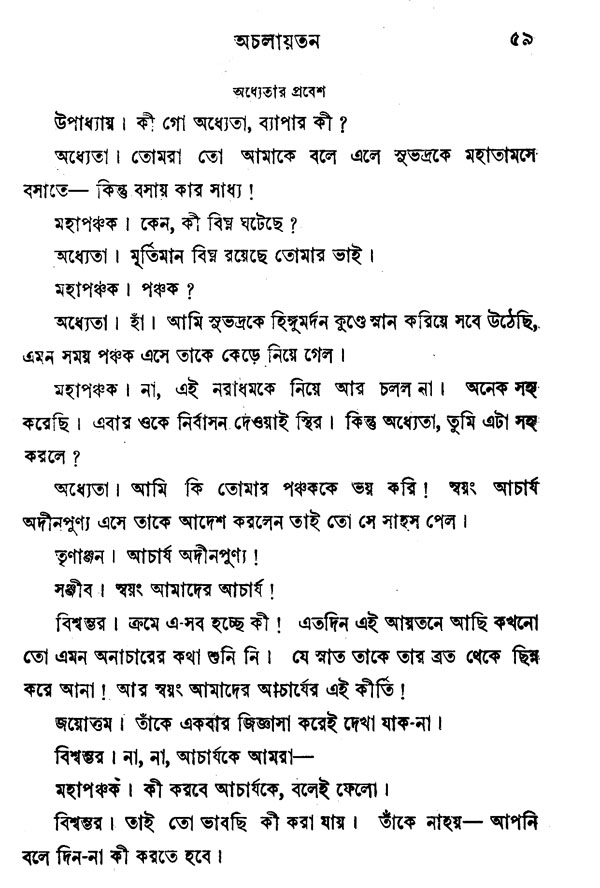 অচলায়তন ৫৯
অধ্যেতার প্রবেশ
উপাধ্যায়। কী গো অধ্যেতা, ব্যাপার কী ?
অধ্যেতা। তোমরা তো আমাকে বলে এলে সুভদ্রকে মহাতামসে
বসাতে— কিন্তু বসায় কার সাধ্য !
মহাপঞ্চক। কেন, কী বিঘ্ন ঘটেছে ?
অধ্যেতা। মূর্তিমান বিঘ্ন রয়েছে তোমার ভাই।
মহাপঞ্চক। পঞ্চক ?
অধ্যেতা। হাঁ। আমি সুভদ্রকে হিঙ্গুমর্দন কুণ্ডে স্নান করিয়ে সবে উঠেছি,
এমন সময় পঞ্চক এসে তাকে কেড়ে নিয়ে গেল।
মহাপঞ্চক। না, এই নরাধমকে নিয়ে আর চলল না। অনেক সহ্য
করেছি। এবার ওকে নির্বাসন দেওয়াই স্থির। কিন্তু অধ্যেতা, তুমি এটা সহ্য
করলে ?
অধ্যেতা। আমি কি তোমার পঞ্চককে ভয় করি ! স্বয়ং আচার্য
অদীনপুণ্য এসে তাকে আদেশ করলেন তাই তো সে সাহস পেল।
তৃণাঞ্জন। আচার্য অদীনপুণ্য !
সঞ্জীব। স্বয়ং আমাদের আচার্য !
বিশ্বম্ভর। ক্রমে এ-সব হচ্ছে কী ! এতদিন এই আয়তনে আছি কখনো
তো এমন অনাচারের কথা শুনি নি। যে স্নাত তাকে তার ব্রত থেকে ছিন্ন
করে আনা ! আর স্বয়ং আমাদের আচার্যের এই কীর্তি !
জয়োত্তম। তাঁকে একবার জিজ্ঞাসা করেই দেখা যাক-না।
বিশ্বম্ভর। না, না, আচার্যকে আমরা—
মহাপঞ্চক। কী করবে আচার্যকে, বলেই ফেলো।
বিশ্বম্ভর। তাই তো ভাবছি কী করা যায়। তাঁকে নাহয়— আপনি
বলে দিন-না কী করতে হবে।